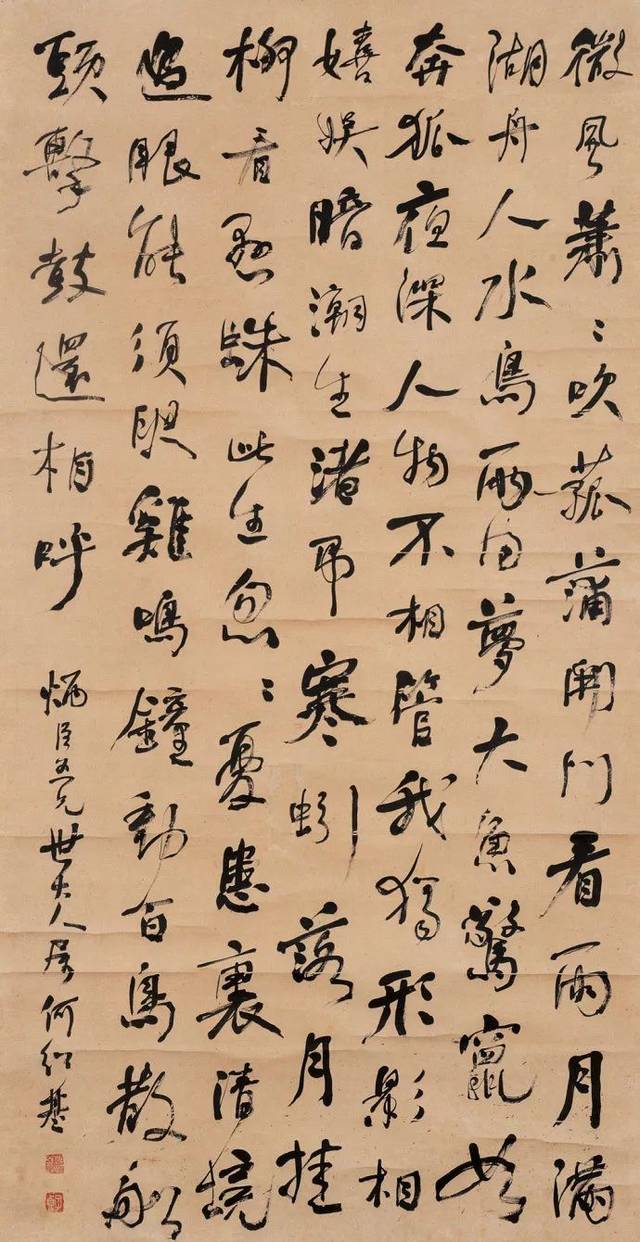 微風蕭〻吹菰蒲開門看雨月滿
湖舟人水鳥兩同夢大魚驚竄如
奔狐夜深人物不相管我獨形影相
嬉娛暗潮生渚吊寒蚓落月挂
柳看懸蛛此生忽〻憂患裏清境
過眼能須臾雞鳴鐘動百鳥散船
頭擊鼓還相呼
兄世大人屬何紹基